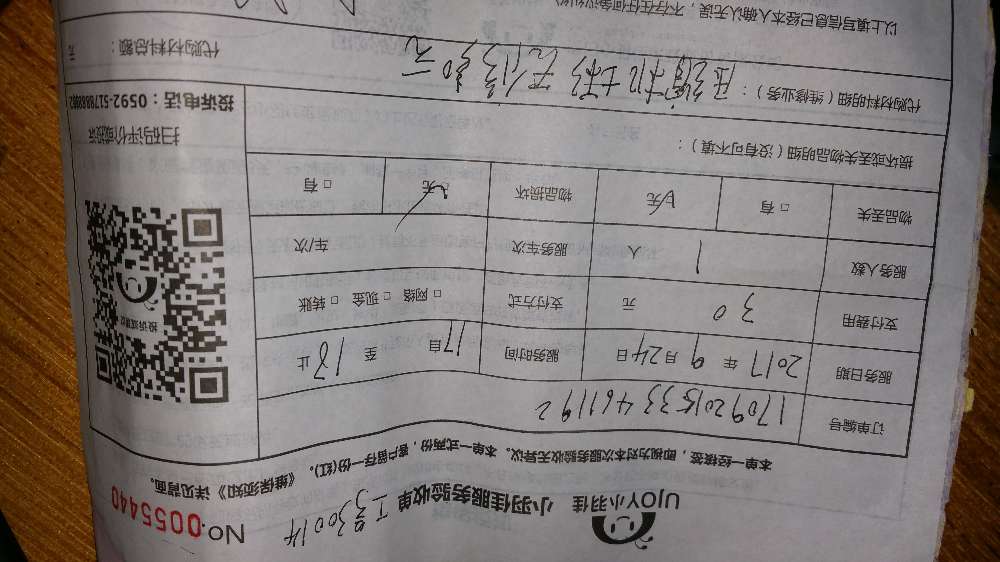 UJOY小羽佳 小羽佳服务验收单 工号30014 No.0055440
本单一经核签，即视为对本次服务验收无异议。本单一式两份，客户留存一份(红)。《维保须知》详见背面。
订单编号 17092015334611192
服务日期 2017年9月24日 服务时间 17自 至 18止
支付费用 30 元 支付方式 □ 网络 □ 现金 □ 转账
服务人数 1 人 服务车次 车/次
物品丢失 □ 有 □ 无 物品损坏 □ 无 □ 有
损坏或丢失物品明细（没有可不填）：
投诉或建议
扫码评价或投诉
投诉电话：0592-517888882
代购材料明细（维修业务）：
代购材料总额： 元
以上填写信息已经本人确认无误，不存在任何争议纠纷